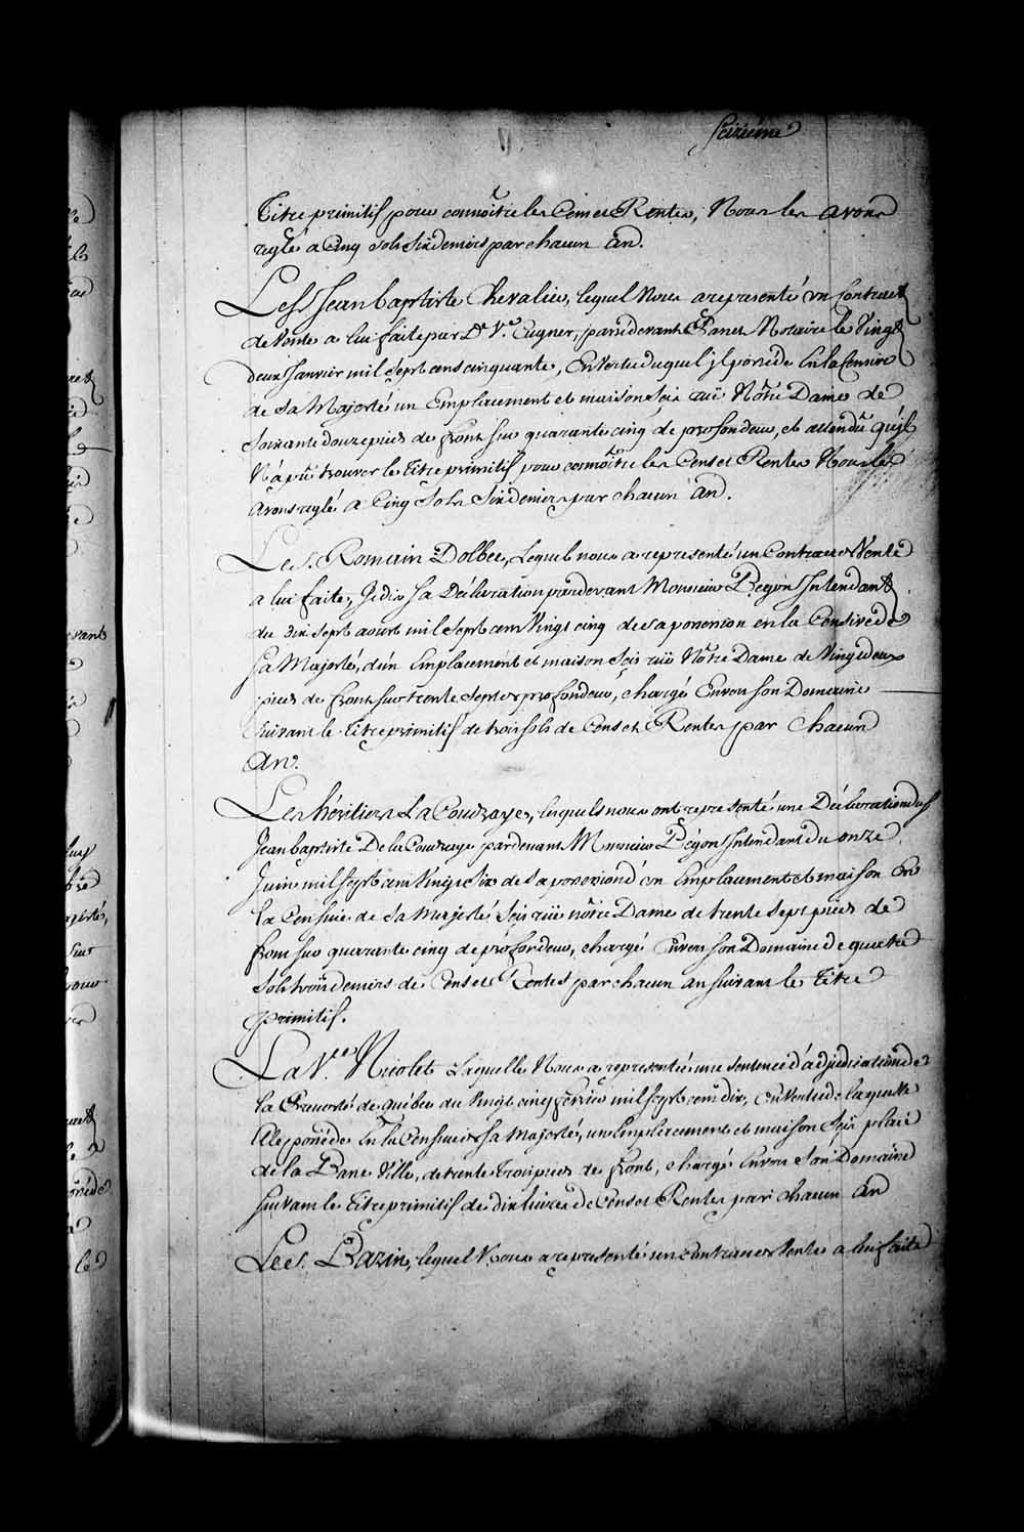 Seizieme
Titre primitif, pour connoître les Cens et Rentes, Nous les avons
reglé a Cinq sols six deniers par chacun an.
Le S. Jean baptiste Chevalier, lequel Nous a representé un Contract
de Vente a lui faite par Dº Vᵉ. Cugner, pardevant Panet Notaire le Vingt
deux Janvier mil Sept cens cinquante, En Vertu duquel jl possede En la Censive
de Sa Majesté un Emplacement et maison Scis ruë Nôtre Dame de
Soixante douze pieds de front sur quarante cinq de profondeur, et attendû qu'jl
N'a pû trouver le Titre primitif pour connoître les Cens et Rentes Nous les
Avons reglé a Cinq Sols Six deniers par chacun an.
Le S. Romain Dolbec, Lequel nous a representé un Contract de Vente
a lui faite, Jedis sa Déclaration pardevant Monsieur Begon Jntendant
du dix sept aoust mil sept cens Vingt cinq de sa possession en la Censive de
Sa Majesté, d'un Emplacement et maison Scis ruë Nôtre Dame de Vingt deux
pieds de front sur trente sept de profondeur, chargé Envers son Domaine
suivant le Titre primitif de trois sols de Cens et Rentes par Chacun
An.
Les héritiers La Coudraye, lesquels nous ont representé une Déclaration du S.
Jean baptiste De la Coudraye pardevant Monsieur Bégon Jntendant du onze
Juin mil sept cens Vingt six de sa possession d'un Emplacement et maison En
la Censive de Sa Majesté Scis ruë nôtre Dame de trente sept pieds de
front sur quarante cinq de profondeur, chargé Envers son Domaine de quatre
Sols trois deniers de Cens et Rentes par chacun an suivant le Titre
primitif.
La Vᵉ. Nicolet Laquelle Nous a representé une sentence d'adjudication de
la Prevosté de Québec du Vingt cinq fevrier mil sept cens dix, En Vertu de laquelle
Elle possede En la Censive de Sa Majesté, un Emplacement et maison Scis place
de la Basse Ville, de trente trois pieds de front, chargé Envers Son Domaine
suivant le Titre primitif de dix livres de Cens et Rentes par chacun an
Le S. Bazin, lequel Nous a representé un contract de Vente a lui faite